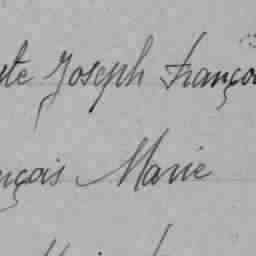 Joseph Franço
nçois Marie